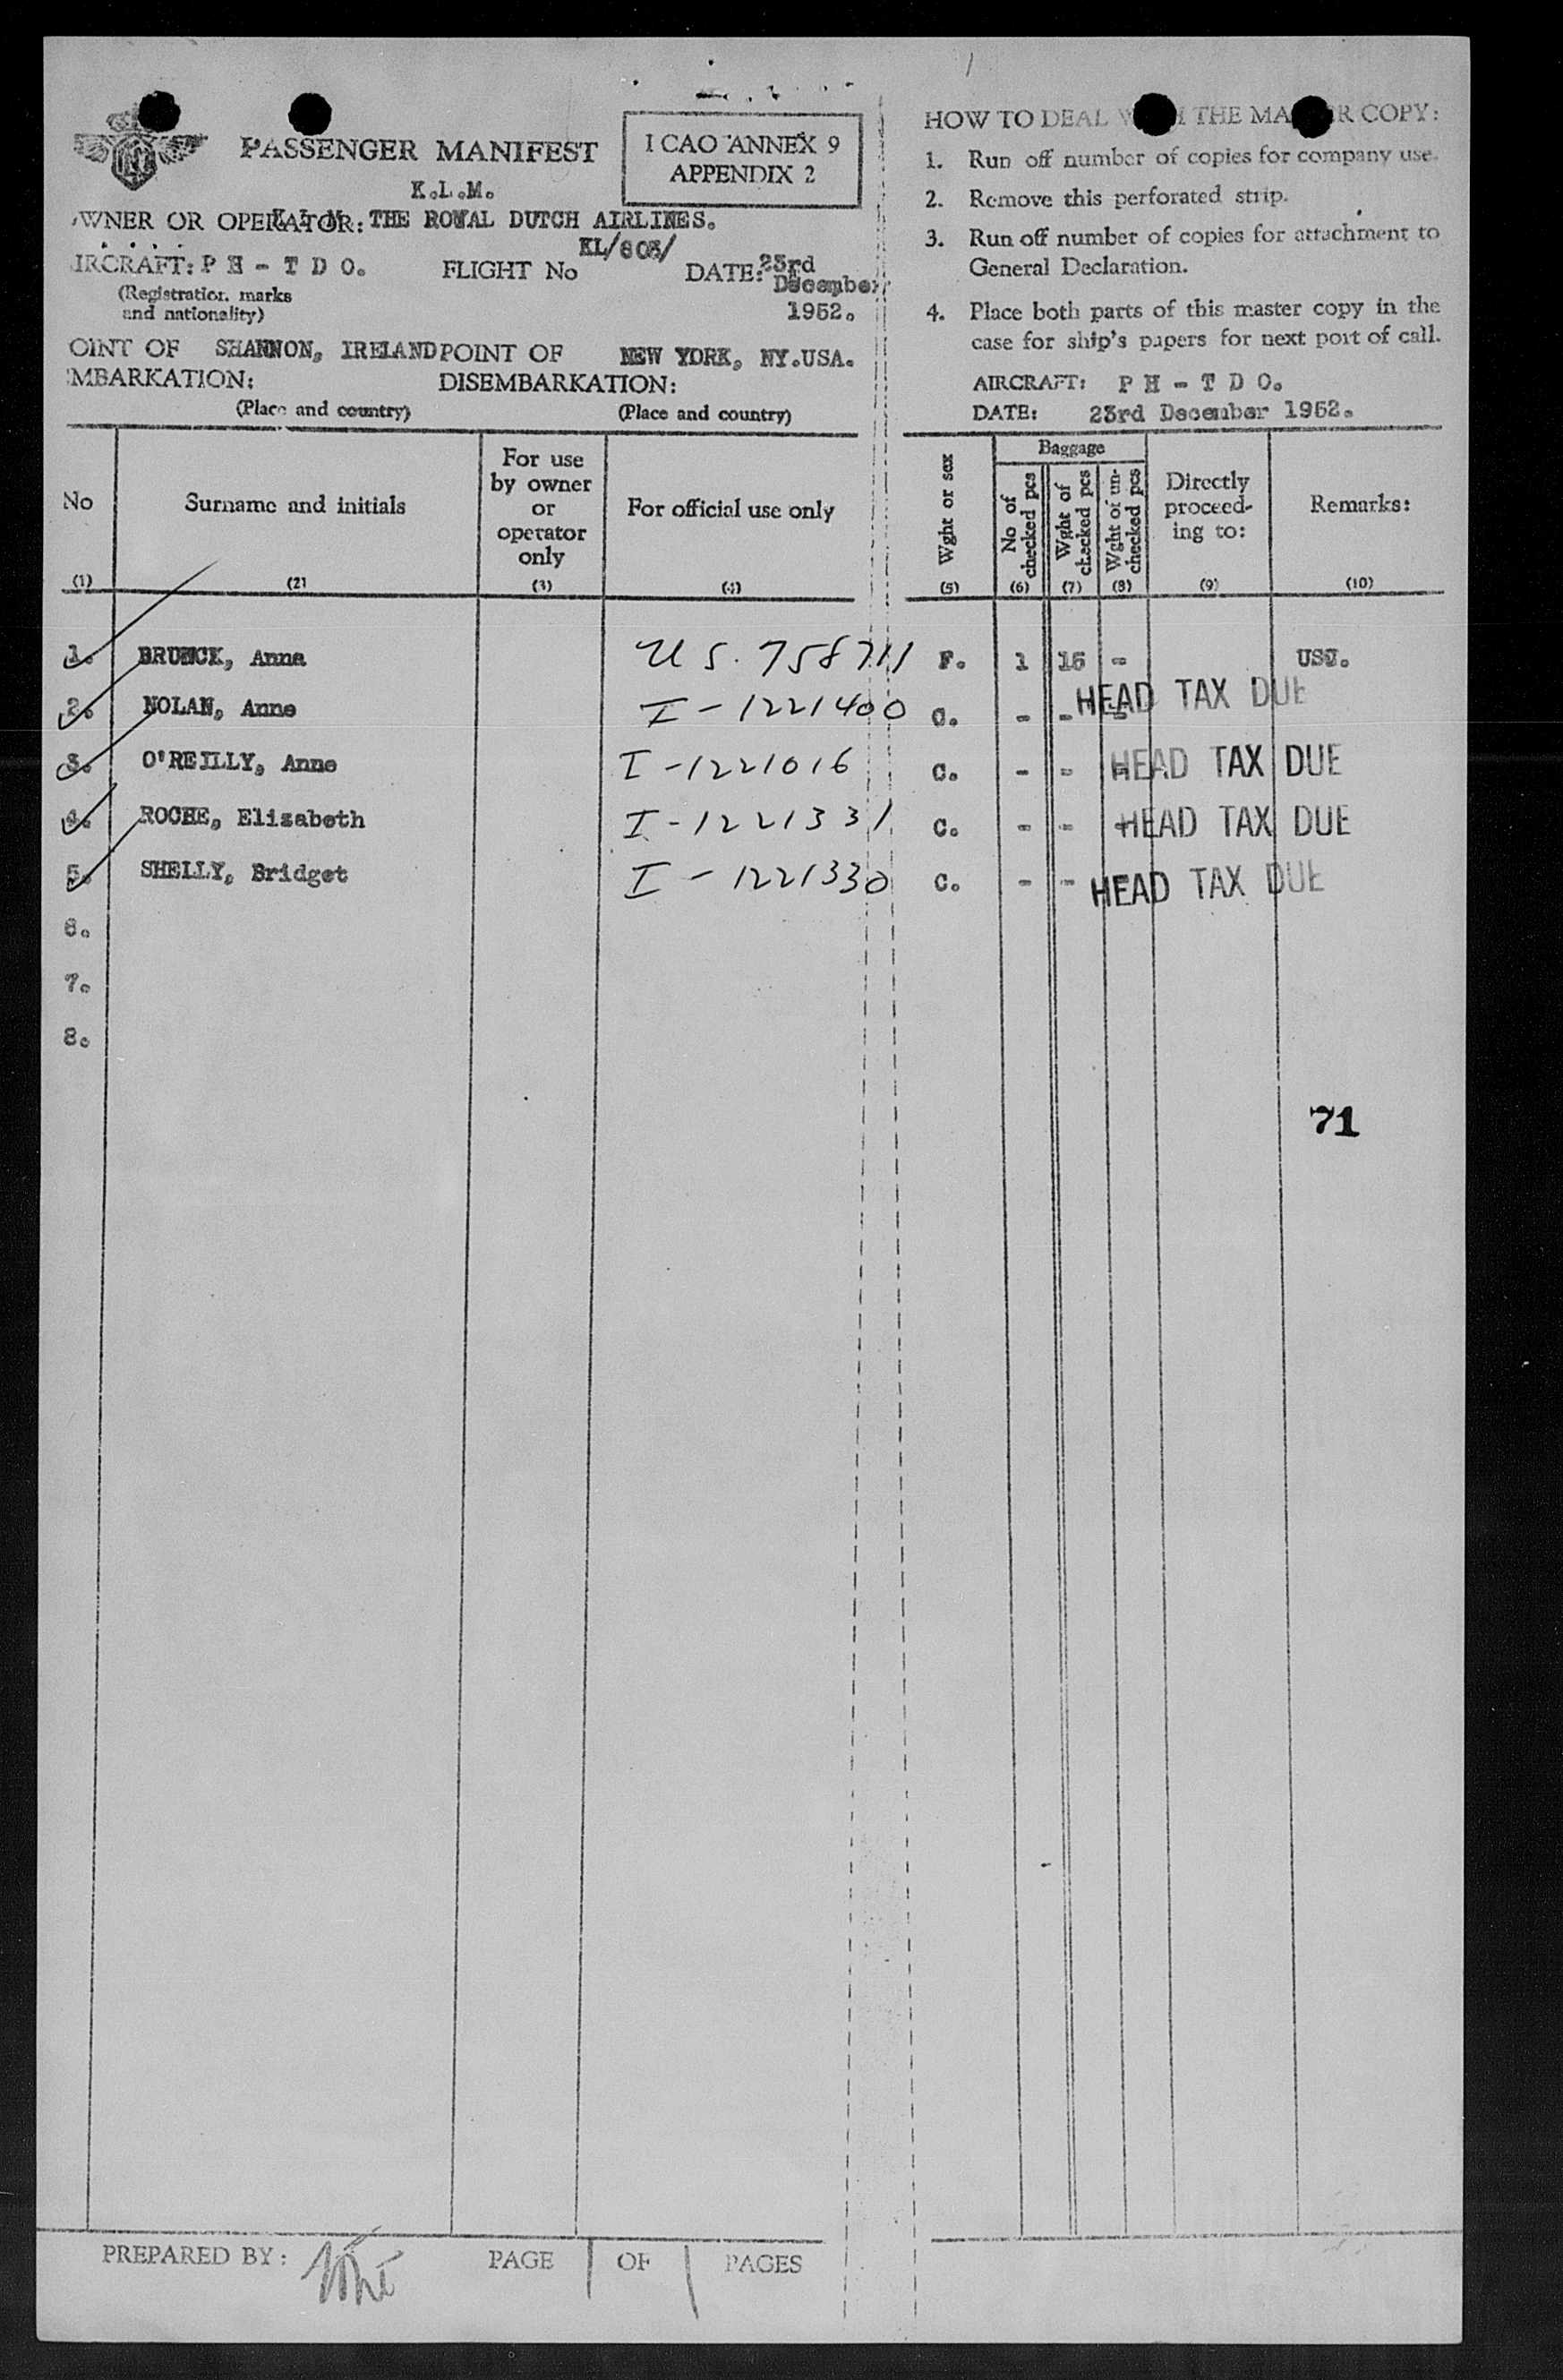 PASSENGER MANIFEST
I CAO ANNEX 9
APPENDIX 2
K.L.M.
WNER OR OPERATOR: THE ROYAL DUTCH AIRLINES.
IRCRAFT: P H - T D O.
FLIGHT No KL/603/
DATE: 23rd December 1952.
(Registration marks
and nationality)
OINT OF MBARKATION: SHANNON, IRELAND
POINT OF DISEMBARKATION: NEW YORK, NY.USA.
(Place and country) (Place and country)
HOW TO DEAL THE MA R COPY:
1. Run off number of copies for company use.
2. Remove this perforated strip.
3. Run off number of copies for attachment to
General Declaration.
4. Place both parts of this master copy in the
case for ship's papers for next port of call.
AIRCRAFT: P H - T D O.
DATE: 23rd December 1952.
No
Surname and initials
For use
by owner
or
operator
only
For official use only
Wght or sex
Baggage
No of checked pcs
Wght of checked pcs
Wght of un-checked pcs
Directly
proceed-
ing to:
Remarks:
(1) (2) (3) (4) (5) (6) (7) (8) (9) (10)
1. BRUNCK, Anna U S. 758711 F. 1 15 - USC.
2. NOLAN, Anne I-1221400 C. - - - HEAD TAX DUE
3. O'REILLY, Anne I-1221016 C. - - - HEAD TAX DUE
4. ROCHE, Elizabeth I-1221331 C. - - - HEAD TAX DUE
5. SHELLY, Bridget I-1221330 C. - - HEAD TAX DUE
6.
7.
8.
71
PREPARED BY:
PAGE OF PAGES